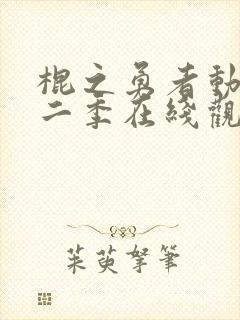 棍之勇者動
二季在綫觀
茱萸拏筆